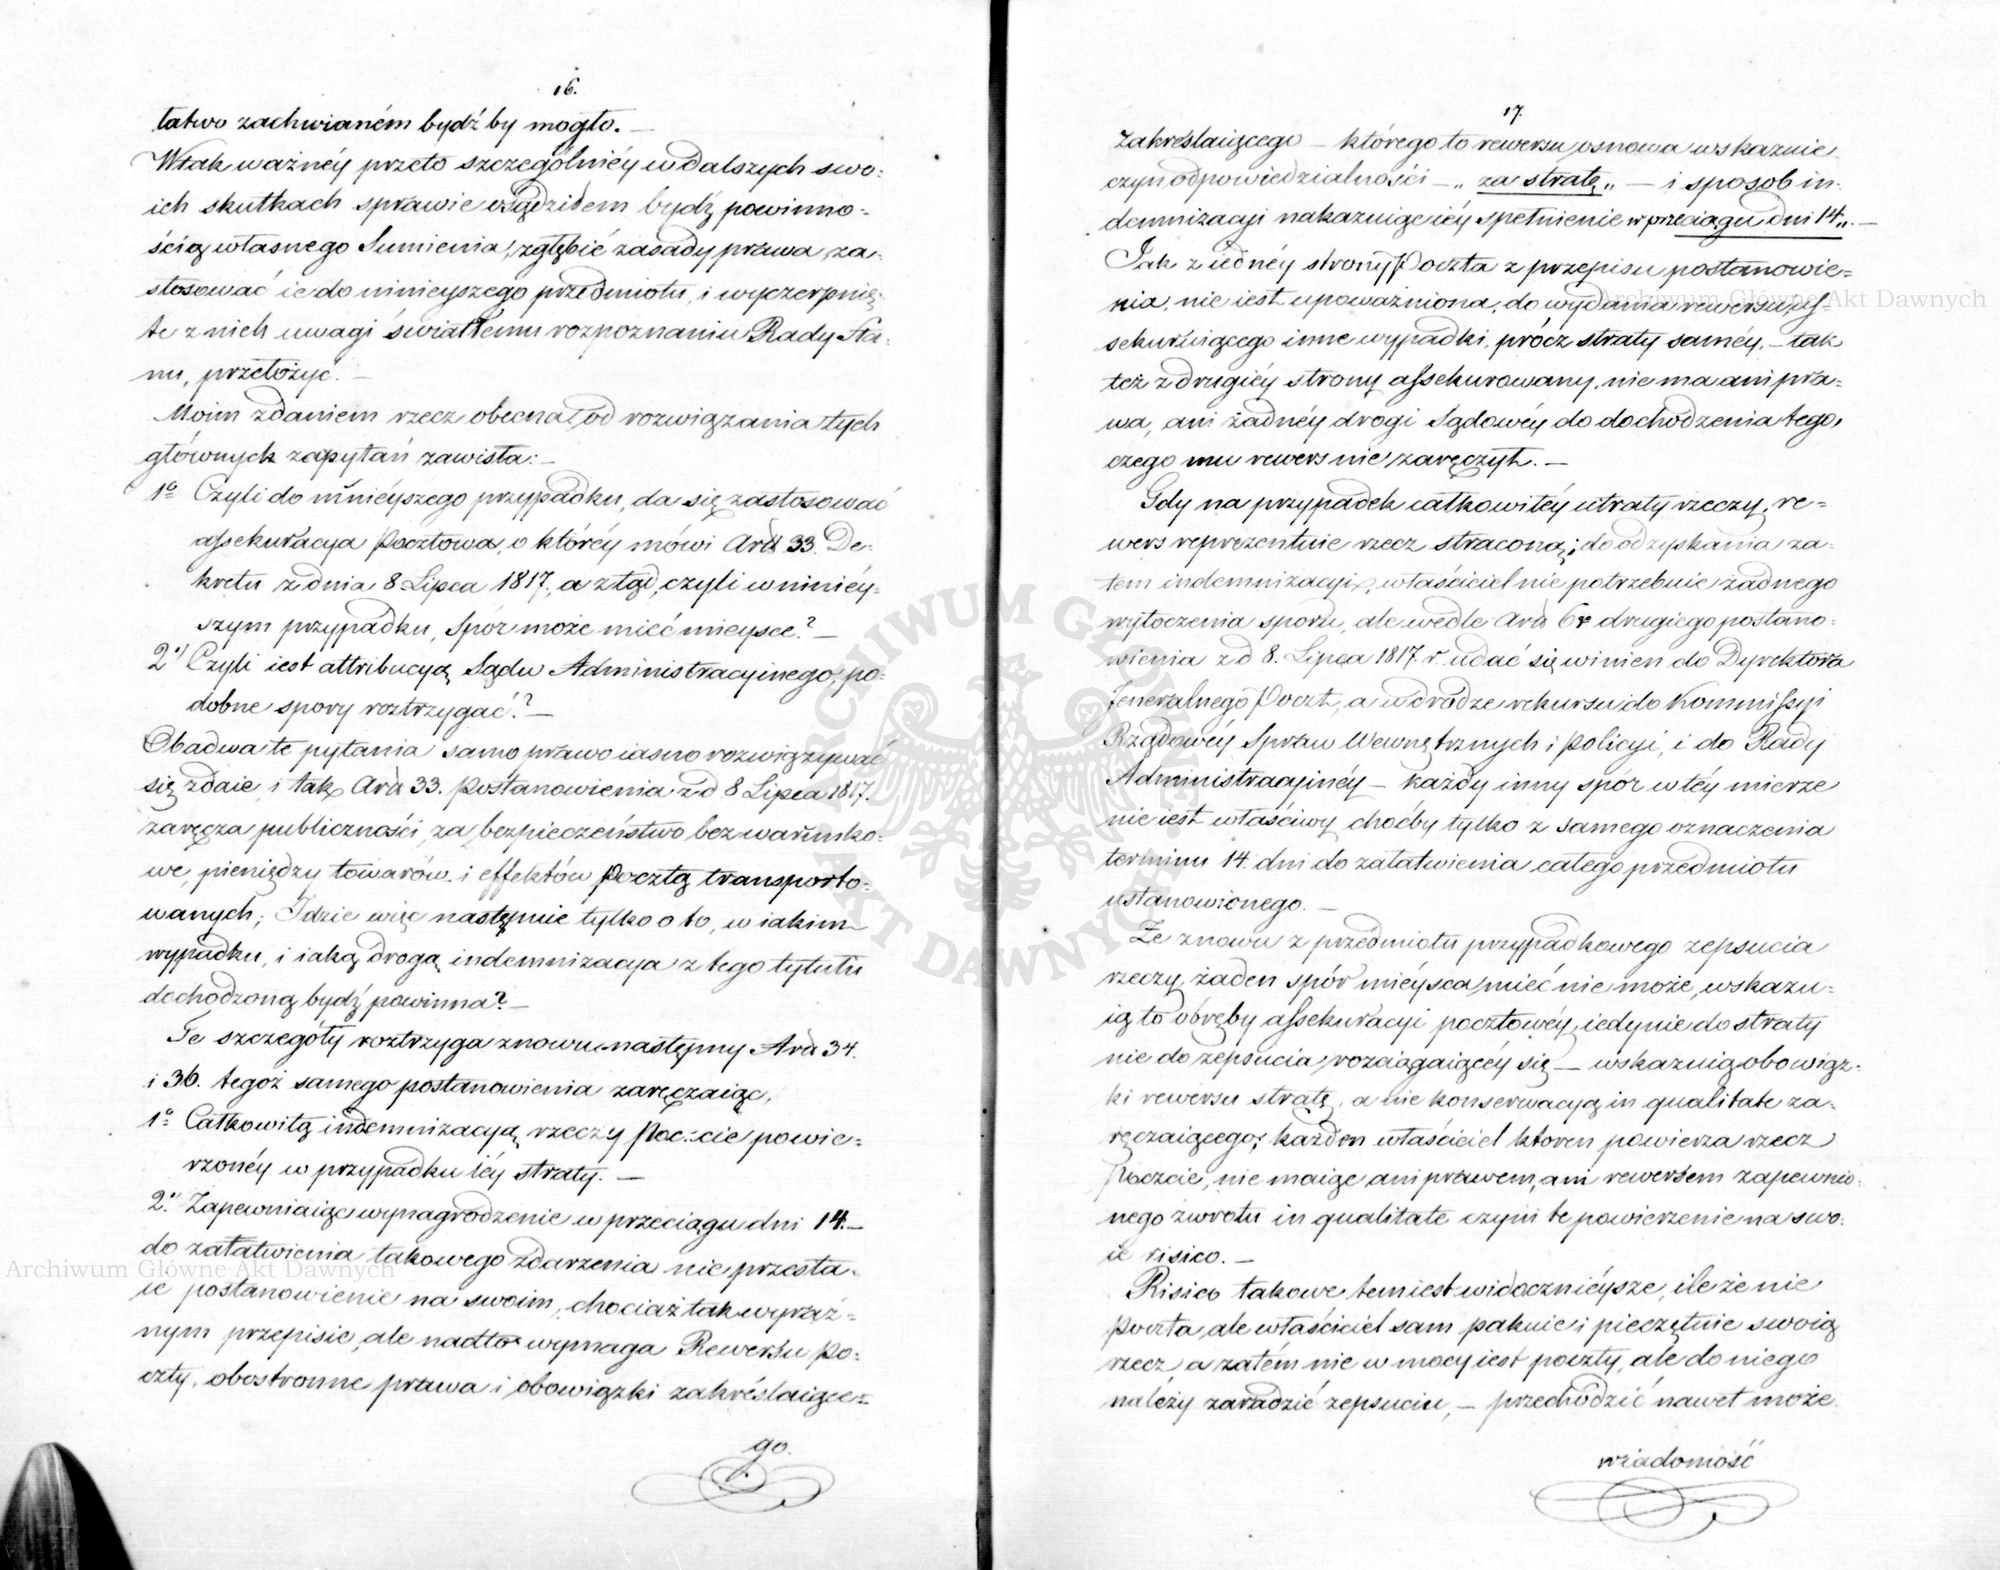 16.
łatwo zachwianém bydź by mogło. —
W tak ważnéy przeto szczególniéy w dalszych swo:
ich skutkach sprawie osądziłem bydź powinno:
ścią własnego Sumienia, zgłębić zasady prawa, za:
stosować ie do ninieyszego przedmiotu, i wyczerpnię:
te z nich uwagi światłemu rozpoznaniu Rady Sta:
nu, przełożyć. —
Moim zdaniem rzecz obecna, od rozwiązania tych
głównych zapytań zawisła: —
1º Czyli do ninieyszego przypadku, da się zastosować
assekuracya Pocztowa, o któréy mówi Art. 33. De:
kretu z dnia 8 Lipca 1817., a ztąd, czyli w niniéy:
szym przypadku, Spór może mieć mieysce? —
2º) Czyli iest attribucyą Sądu Administracyinego, po:
dobne spory roztrzygać? —
Obadwa te pytania samo prawo iasno rozwiązywać
się zdaie, i tak, Art. 33. Postanowienia z d 8 Lipca 1817.
zaręcza publiczności, za bezpieczeństwo bezwarunko:
we, pieniędzy towarów i effektów Pocztą transporto:
wanych; Idzie więc następnie tylko o to, w iakim
wypadku, i iaką drogą indemnizacya z tego tytułu
dochodzoną bydź powinna? —
Te szczegóły roztrzyga znowu następny Art. 34.
i 36. tegoż samego postanowienia zaręczaiąc,
1º Całkowitą indemnizacyą rzeczy Poczcie powie:
rzonéy w przypadku iéy straty. —
2º Zapewniaiąc wynagrodzenie w przeciągu dni 14. —
do załatwienia takowego zdarzenia nie przesta:
ie postanowienie na swoim, chociaż tak wyraź:
nym przepisie, ale nadto wymaga Rewersu Po:
czty, obostronne prawa i obowiązki zakréślaiące:
go.
17.
zakreślaiącego — którego to rewersu osnowa wskazuie
czyn odpowiedzialności — „za stratę„ — i sposób in:
demnizacyi nakazuiąc iéy spełnienie w przeciągu dni 14„. —
Jak z iednéy strony Poczta z przepisu postanowie:
nia, nie iest upoważniona, do wydania rewersu, as:
sekuruiącego inne wypadki, prócz straty saméy, — tak
też z drugiéy strony assekurowany, nie ma ani pra:
wa, ani żadnéy drogi Sądowéy do dochodzenia tego,
czego mu rewers nie zaręczył. —
Gdy na przypadek całkowitéy utraty rzeczy, re:
wers reprezentuie rzecz straconą; do odzyskania za:
tem indemnizacyi, właściciel nie potrzebuie żadnego
wytoczenia sporu, ale wedle Art. 6º drugiego postano:
wienia z d 8. Lipca 1817. r. udać się winien do Dyrektora
Jeneralnego Poczt, a w drodze rekursu do Kommissyi
Rządowéy Spraw Wewnętrznych i Policyi, i do Rady
Administracyinéy — każdy inny spór w téy mierze
nie iest właściwy choćby tylko z samego oznaczenia
terminu 14. dni do załatwienia całego przedmiotu
ustanowionego. —
Że znowu z przedmiotu przypadkowego zepsucia
rzeczy, żaden spór miéysca mieć nie może, wskazu:
ią to obręby assekuracyi pocztowéy, iedynie do straty
nie do zepsucia rozciągaiącéy się — wskazuią obowiąz:
ki rewersu stratę, a nie konserwacyą in qualitate za:
ręczaiącego; każden właściciel któren powierza rzecz
Poczcie, nie maiąc ani prawem, ani rewersem zapewnio:
nego zwrotu in qualitate czyni te powierzenie na swo:
ie risico. —
Risico takowe tem iest widoczniéysze, ile że nie
Poczta, ale właściciel sam pakuie i pieczętuie swoią
rzecz, a zatém nie w mocy iest poczty, ale do niego
należy zaradzić zepsuciu, — przechodzić nawet może
wiadomość
Archiwum Główne Akt Dawnych
Archiwum Główne Akt Dawnych
ARCHIWUM GŁÓWNE AKT DAWNYCH